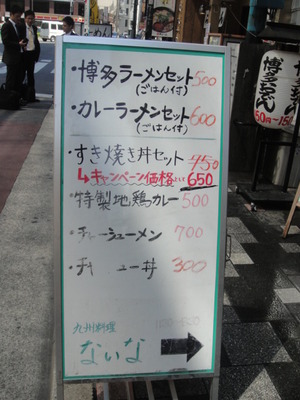 ・博多ラーメンセット 500
(ごはん付)
・カレーラーメンセット 600
(ごはん付)
・すき焼き丼セット 750
↳キャンペーン価格として 650
・特製地鶏カレー 500
・チャーシューメン 700
ュー丼 300
九州料理
ないな
博多おでん
50円~150